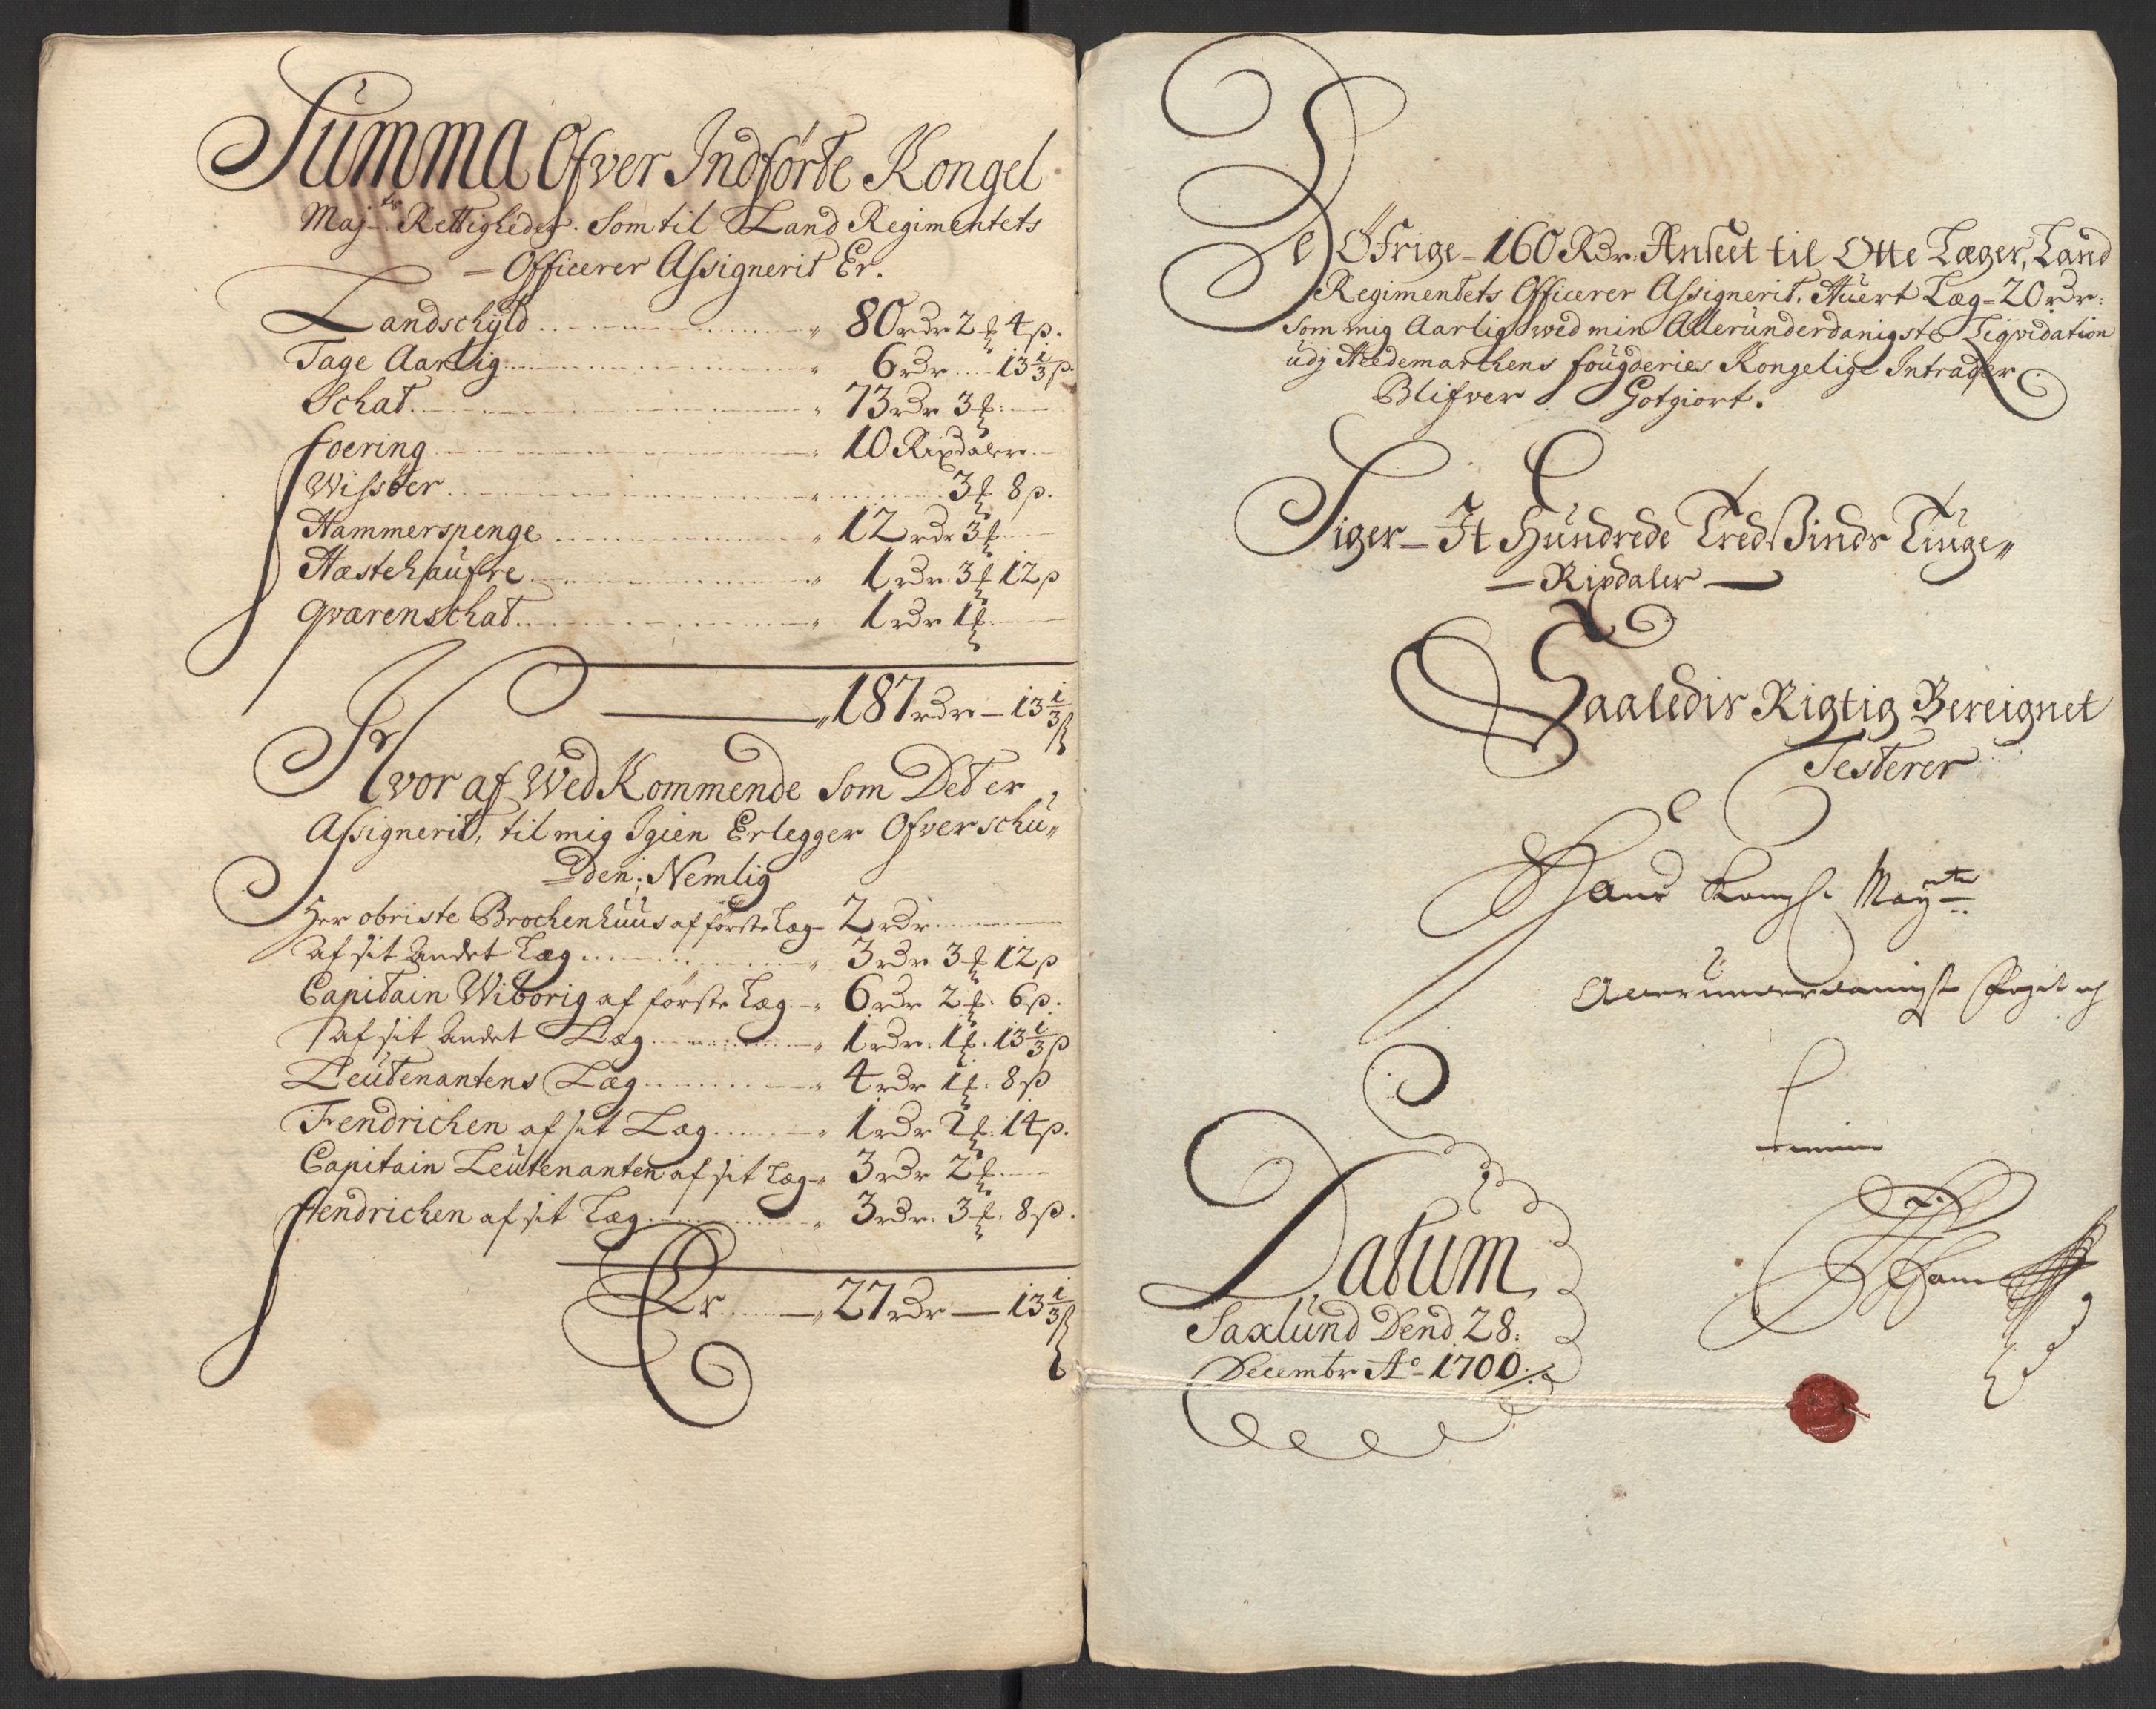 Summa Ofver Indførte Kongel
Maj:ts Rettigheder. Som til Land Regimentets
— Officerer Assignerit Er.
Landschyld 80 rdr 2 ƒ 4 β.
Tage Aarlig 6 rdr 13 1/3 β
Schat 73 rdr 3 ƒ
foering 10 Rixdaler
Wissøer 3 ƒ 8 β.
Hammerspenge 12 rdr 3 ƒ
Hæstehaufre 1 rdr. 3 ƒ 12 β
qværenschat 1 rdr 1 ƒ
187 rdr — 13 1/3 β
Hvor af Wed Kommende Som Det er
Assignerit, til mig Igien Erlegger Ofverschu„
den; Nemlig
Her obriste Brochenhuus af første Læg 2 rdr
af sit andet Læg 3 rdr 3 ƒ 12 β
Capitain Wiborig af første Læg 6 rdr 2 ƒ. 6 β.
af sit andet Læg 1 rdr. 1 ƒ. 13 1/3 β
Leutenantens Læg 4 rdr 1 ƒ. 8 β
Fendrichen af sit Læg 1 rdr 2 ƒ. 14 β.
Capitain Leutenanten af sit Læg 3 rdr 2 ƒ
fendrichen af sit Læg 3 rdr. 3 ƒ. 8 β.
Er 27 rdr — 13 1/3 β
De Øfrige - 160 Rdr. Anseet til Otte Læger, Land
Regimentets Officerer Assignerit, Huert Læg - 20 rdr:
Som mig Aarlig wed min Allerunderdanigste Liqvidation
udj Heedemarchens fougderies Kongelige Intrader
Blifver Gotgiort.
Siger - It Hundrede Tredsinds Tiuge„
— Rixdaler —
Saaledis Rigtig Bereignet
Testerer
Hans Kongl: May:ts
Allerunderdanigste Fogit
Datum
Saxlund Dend 28:
Decembr Ao - 1700: